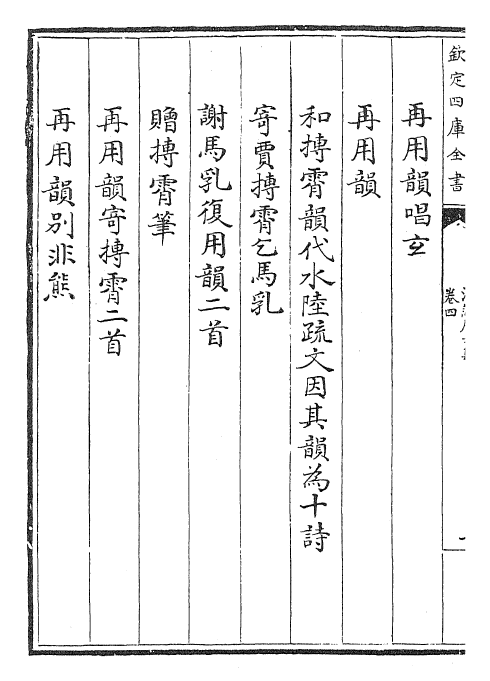 欽定四庫全書
卷四
再用韻唱玄
再用韻
和搏霄韻代水陸疏文因其韻為十詩
寄賈搏霄乞馬乳
謝馬乳復用韻二首
贈搏霄筆
再用韻寄搏霄二首
再用韻别非熊